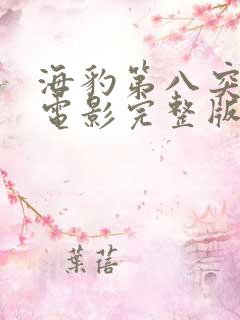 海豹第八突
電影完整版
葉蓓